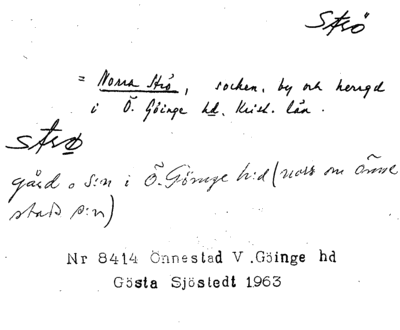 Strö
= Norra Strö, socken, by och herrgd
i Ö. Göinge hd. Krist. län.
Strø
gård o s:n i Ö. Göinge h:d (norr om Önne
stads s:n)
Nr 8414 Önnestad V .Göinge hd
Gösta Sjöstedt 1963